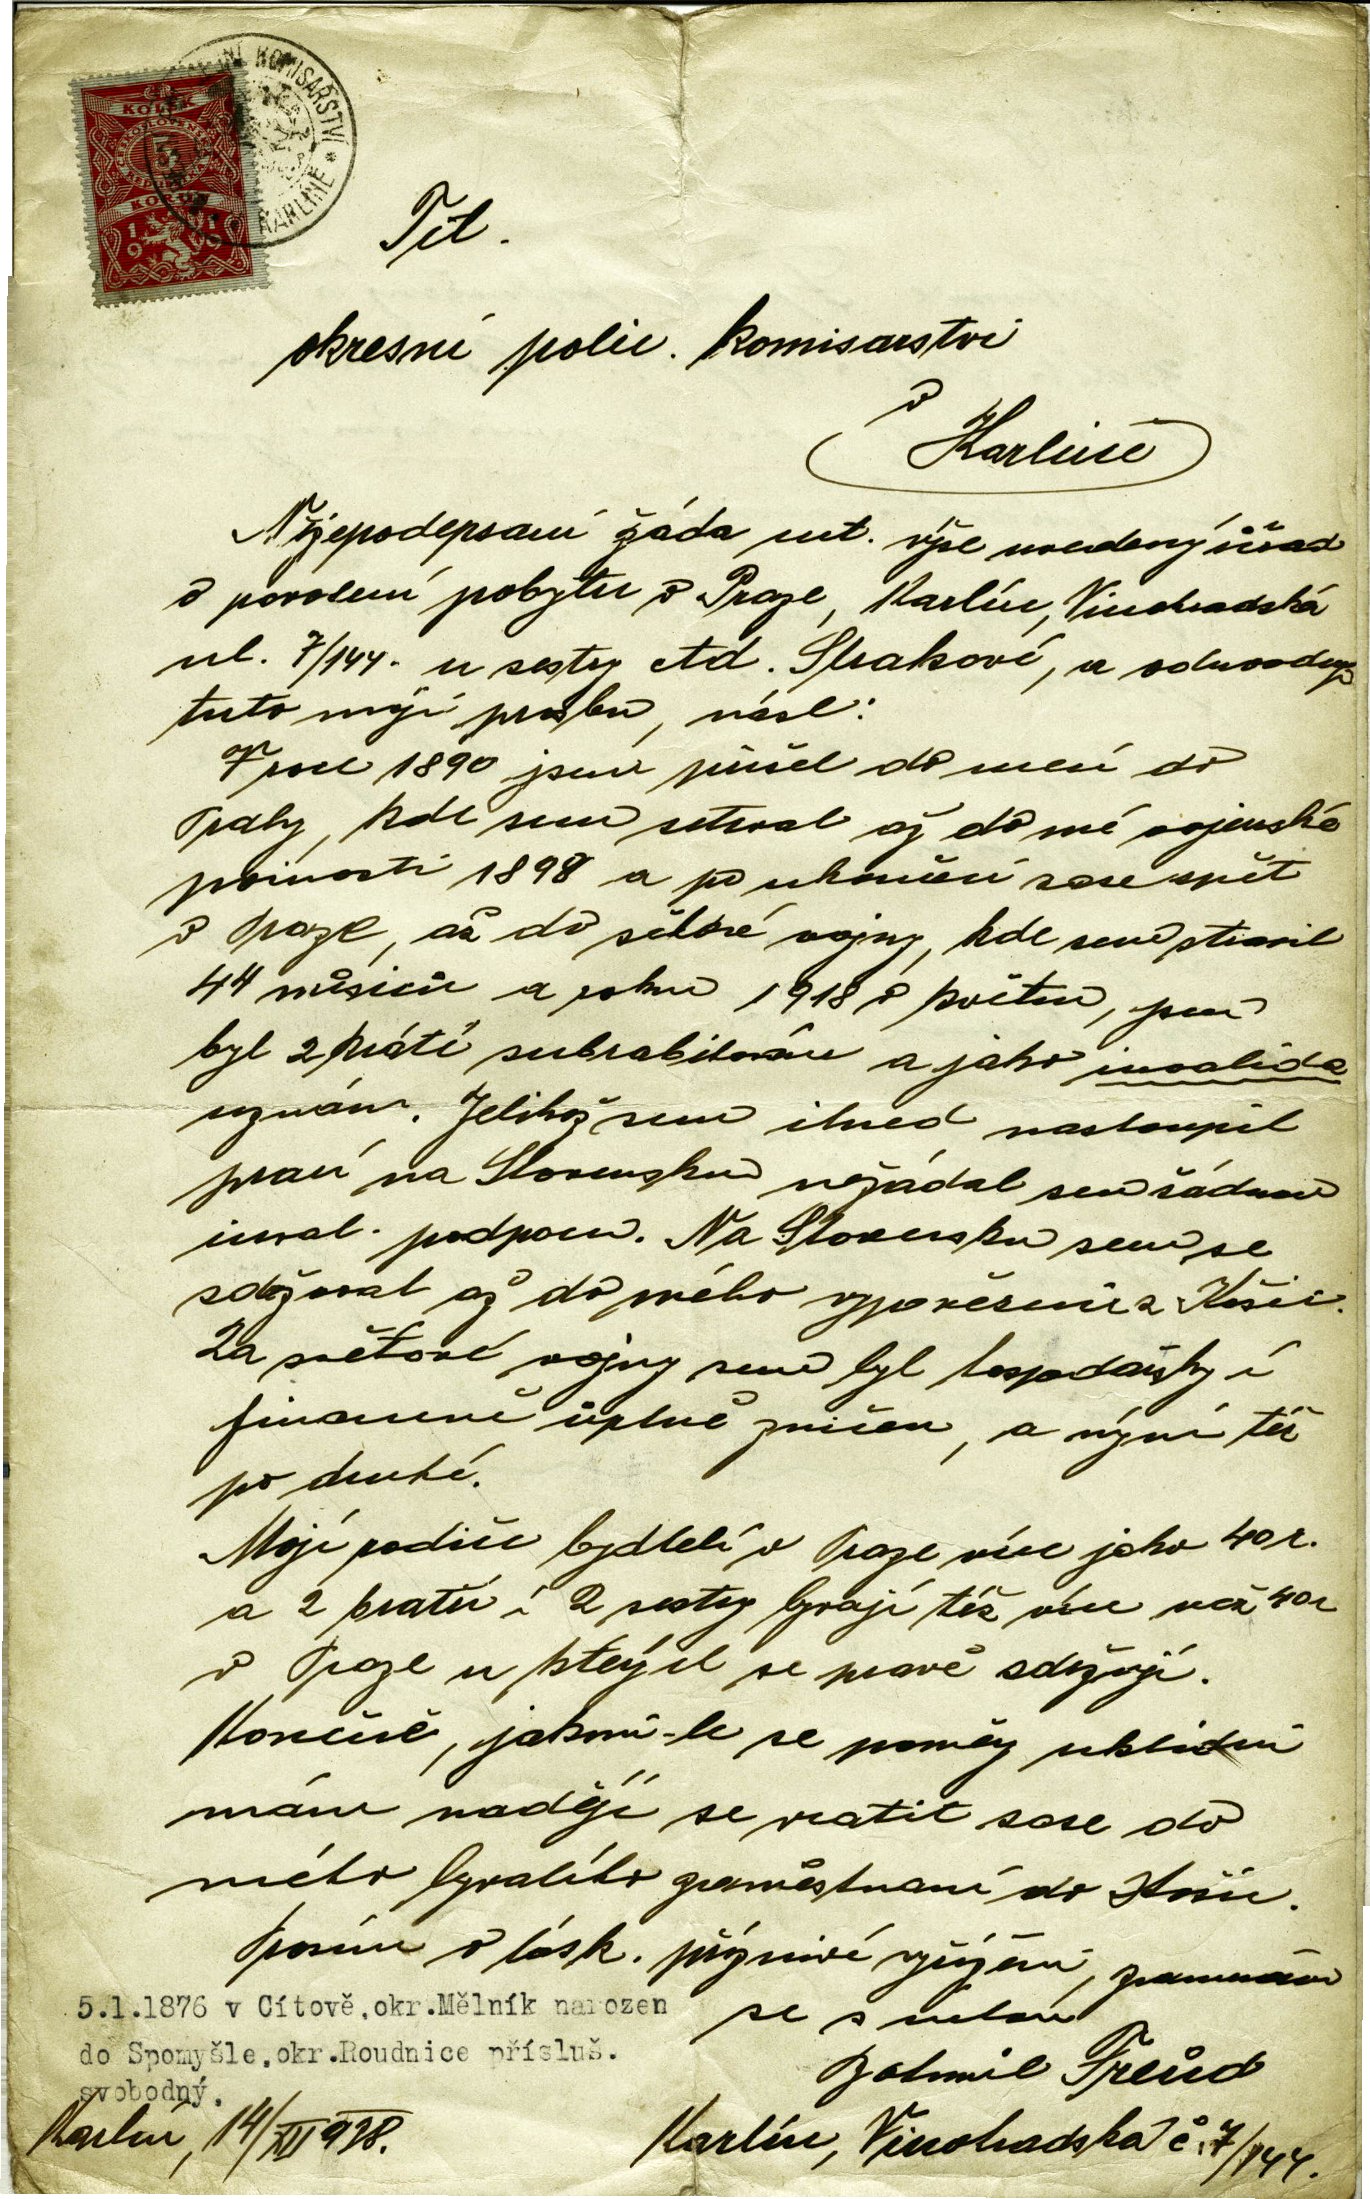 KOLEK
ČESKOSLOVENSKÁ
REPUBLIKA
5
KORUN
1919
KOMISAŘSTVÍ * KARLÍNĚ
Tit.
okresní polic. komisarství
v
Karlíně
Nížepodepsaní žáda sl. výše uvedený úřad
o povolení pobytu v Praze, Karlín, Vinohradská
ul. 7/144. u sestry Ad. Strakové, a odůvodnuji
tuto mojí prosbu, násl:
V roce 1890 jsem přišel do učení do
Prahy, kde sem setrval až do mé vojenské
poinosti 1898 a po ukončení zase zpět
v Praze, až do světové vojny, kde sem strávil
44 měsíců a roku 1918 v květnu, jsem
byl 2 kráti suprabitován a jako invalida
uznán. Jelikož sem ihned nastoupil
prací na Slovensku nežádal sem šádnou
inval. podporu. Na Slovensku sem se
zdržoval až do mého vypovězení z Košic.
Za světové vojny sem byl hospodářsky i
finančně úplně zničen, a nýní též
po druhé.
Mojí rodiče bydleli v Praze více jako 40 r.
a 2 bratří i 2 sestry bývají též více než 40 r
v Praze u kterých se pravě zdržují.
Konečně, jakmi-le se poměry uklidní
mám nadějí se vratit zase do
mého byvalího zaměstnaní do Košic.
Prosím o lásk. příznivé vyřížení, znamenám
se s úctou
Bohumil Freund
5.1.1876 v Cítově,okr.Mělník narozen
do Spomyšle,okr.Roudnice přísluš.
svobodný.
Karlín, 14/XII 938.
Karlín, Vinohradská č. 7/144.